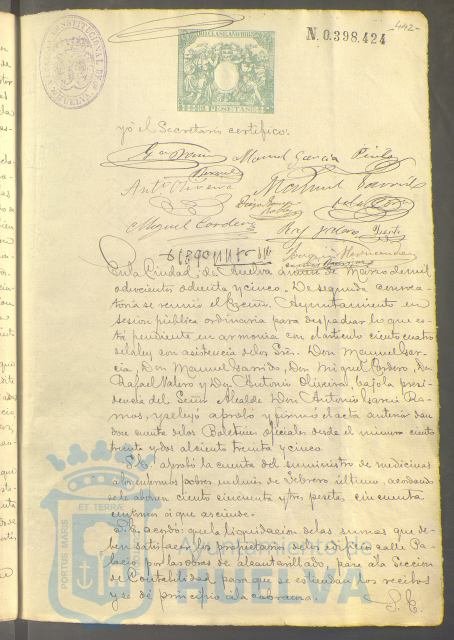 N. 0.398.424
-442-
yo el Secretario certifico:
Manuel García
Antº Oliveira
Manuel Garrido
Miguel Cordero
En la Ciudad de Huelva á nueve de Marzo de mil
ochocientos ochenta y cinco. De segunda convoca
toria se reunió el Excmo. Ayuntamiento en
sesion pública ordinaria para despachar lo que es
ta pendiente en armonia con el articulo ciento cuatro
de la ley con asistencia de los Sres. Don Manuel Gar
cia, Don Manuel Garrido, Don Miguel Cordero, Don
Rafael Valero y Don Antonio Oliveira, bajo la presi
dencia del Señor Alcalde Don Antonio Garcia Ra
mos, y se leyó aprobó y firmó el acta anterior dan
dose cuenta de los Boletines oficiales desde el número ciento
treinta y dos al ciento treinta y cinco.
S. E. aprobó la cuenta del suministro de medicinas
á los enfermos pobres en el mes de Febrero último, acordando
se le abonen ciento cincuenta y tres pesetas cincuenta
centimos á que asciende.
S. E. acordó: que la liquidacion de las sumas que de
ben satisfacer los propietarios de los de la calle Pa
lacio, por las obras de alcantarillado, pase á la Seccion
de Contabilidad para que se estiendan los recibos
y se dé principio á la cobranza.
S. E.
PORTUS MARIS
ET TERRÆ
Ayuntamiento de
HUELVA